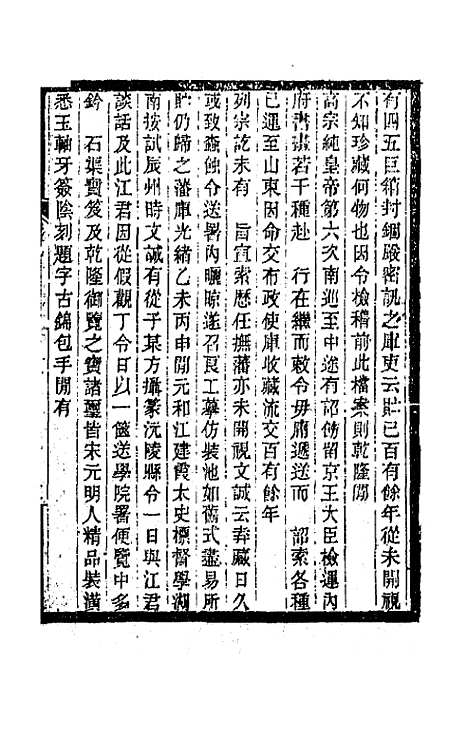 有四五巨箱封錮嚴密訊之庫吏云貯已百有餘年從未開視
不知珍藏何物也因令檢稽前此檔案則乾隆間
高宗純皇帝第六次南巡至中途有詔傍留京王大臣檢運內
府書畫若干種赴 行在繼而敕令毋庸遞送而 詔索各種
已運至山東因命交布政使庫收藏流交百有餘年
列宗訖未有 旨宣索歷任撫藩亦未開視文誠云弆藏日久
或致蠹蝕令送署內曬晾遂召良工摹仿裝池如舊式盡易所
貯仍歸之藩庫光緒乙未丙申間元和江建霞太史標督學湖
南按試辰州時文誠有從子某方攝篆沅陵縣令一日與江君
談話及此江君因從假觀丁令日以一篋送學院署便覽中多
鈐 石渠寶笈及乾隆御覽之寶諸璽皆宋元明人精品裝潢
悉玉軸牙籤陰刻題字古錦包手間有